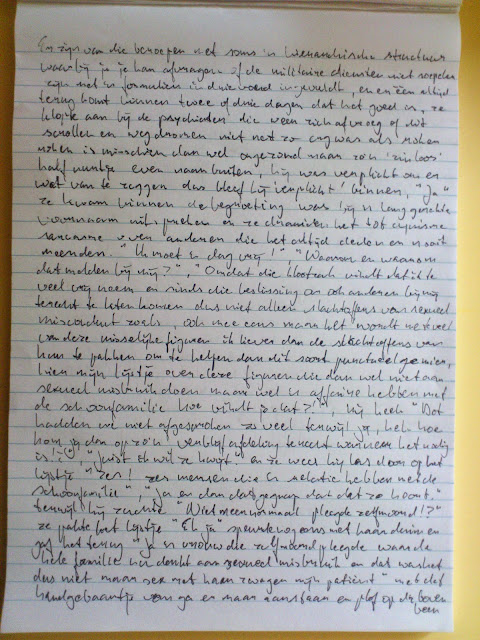 En zijn van die beroepen met soms 'n hierarchische structuur
waarbij je je kan afvragen of de militaire diensten niet soepeler
zijn met 'n formulier in drievoud ingevuld, en en één altijd
terug komt binnen twee of drie dagen dat het goed is, ze
klopte aan bij de psychiater die weer zich afvroeg of dit
scrollen en wegdoorsen niet net zo erg was als roken
roken is misschien dan wel ongezond maar zo'n 'zijnloos'
half uurtje even naar buiten, hij was verplicht om er
wat van te zeggen dus bleef hij 'verplicht' binnen, "Ja"
ze kwam binnen de begroeting was bij 'n lang geziene
voornaam uitspreken en ze draaiden het tot cynische
sarcasme over anderen die het altijd deden en nooit
meenden. "Ik moet 'n dag vrij!" "Waarom en waarom
dat melden bij mij?", "Omdat die hoofdzuch vindt dat ik te
veel vrij neem en sinds die beslissing om ook anderen bij mij
terecht te laten komen dus niet alleen slachtoffers van sexueel
misconduct zoals ook mee eens maar het wordt me teveel
van deze misselijke figuren ik liever dan de slachtoffers van
hun te pakken om te helpen dan dit soort
hier mijn lijstje over deze figuren die dan wel niet aan
sexueel misbruik doen maar wel 'n affaire hebben met
de schoonfamilie hoe vindt je dat?", hij keek "Dat
hadden we niet afgesproken zo veel terwijl jij, heb hoe
kom jij dan op zo'n verblijfafdeling terecht wanneer het nodig
is!?", "Juist ik wil ze kwijt" en ze wees hij las door op het
lijstje "Zes! zes mensen die 'n relatie hebben met de
schoonfamilie", "Ja en dan dat gegnup dat dat zo hoort."
terwijl hij zuchtte "Niet meer normaal pleegde zelfmoord!?"
ze pakte het lijstje "Eh ja" speurde nog eens met haar duim en
gaf het terug "Ja 'n vrouw die zelfmoord pleegde waar de
hele familie nu denkt aan sexueel misbruik en dat was het
dus niet maar sex met haar zwager mijn patiënt" met dat
handgebaartje van ga er maar aanstaan en plof op de boven
been